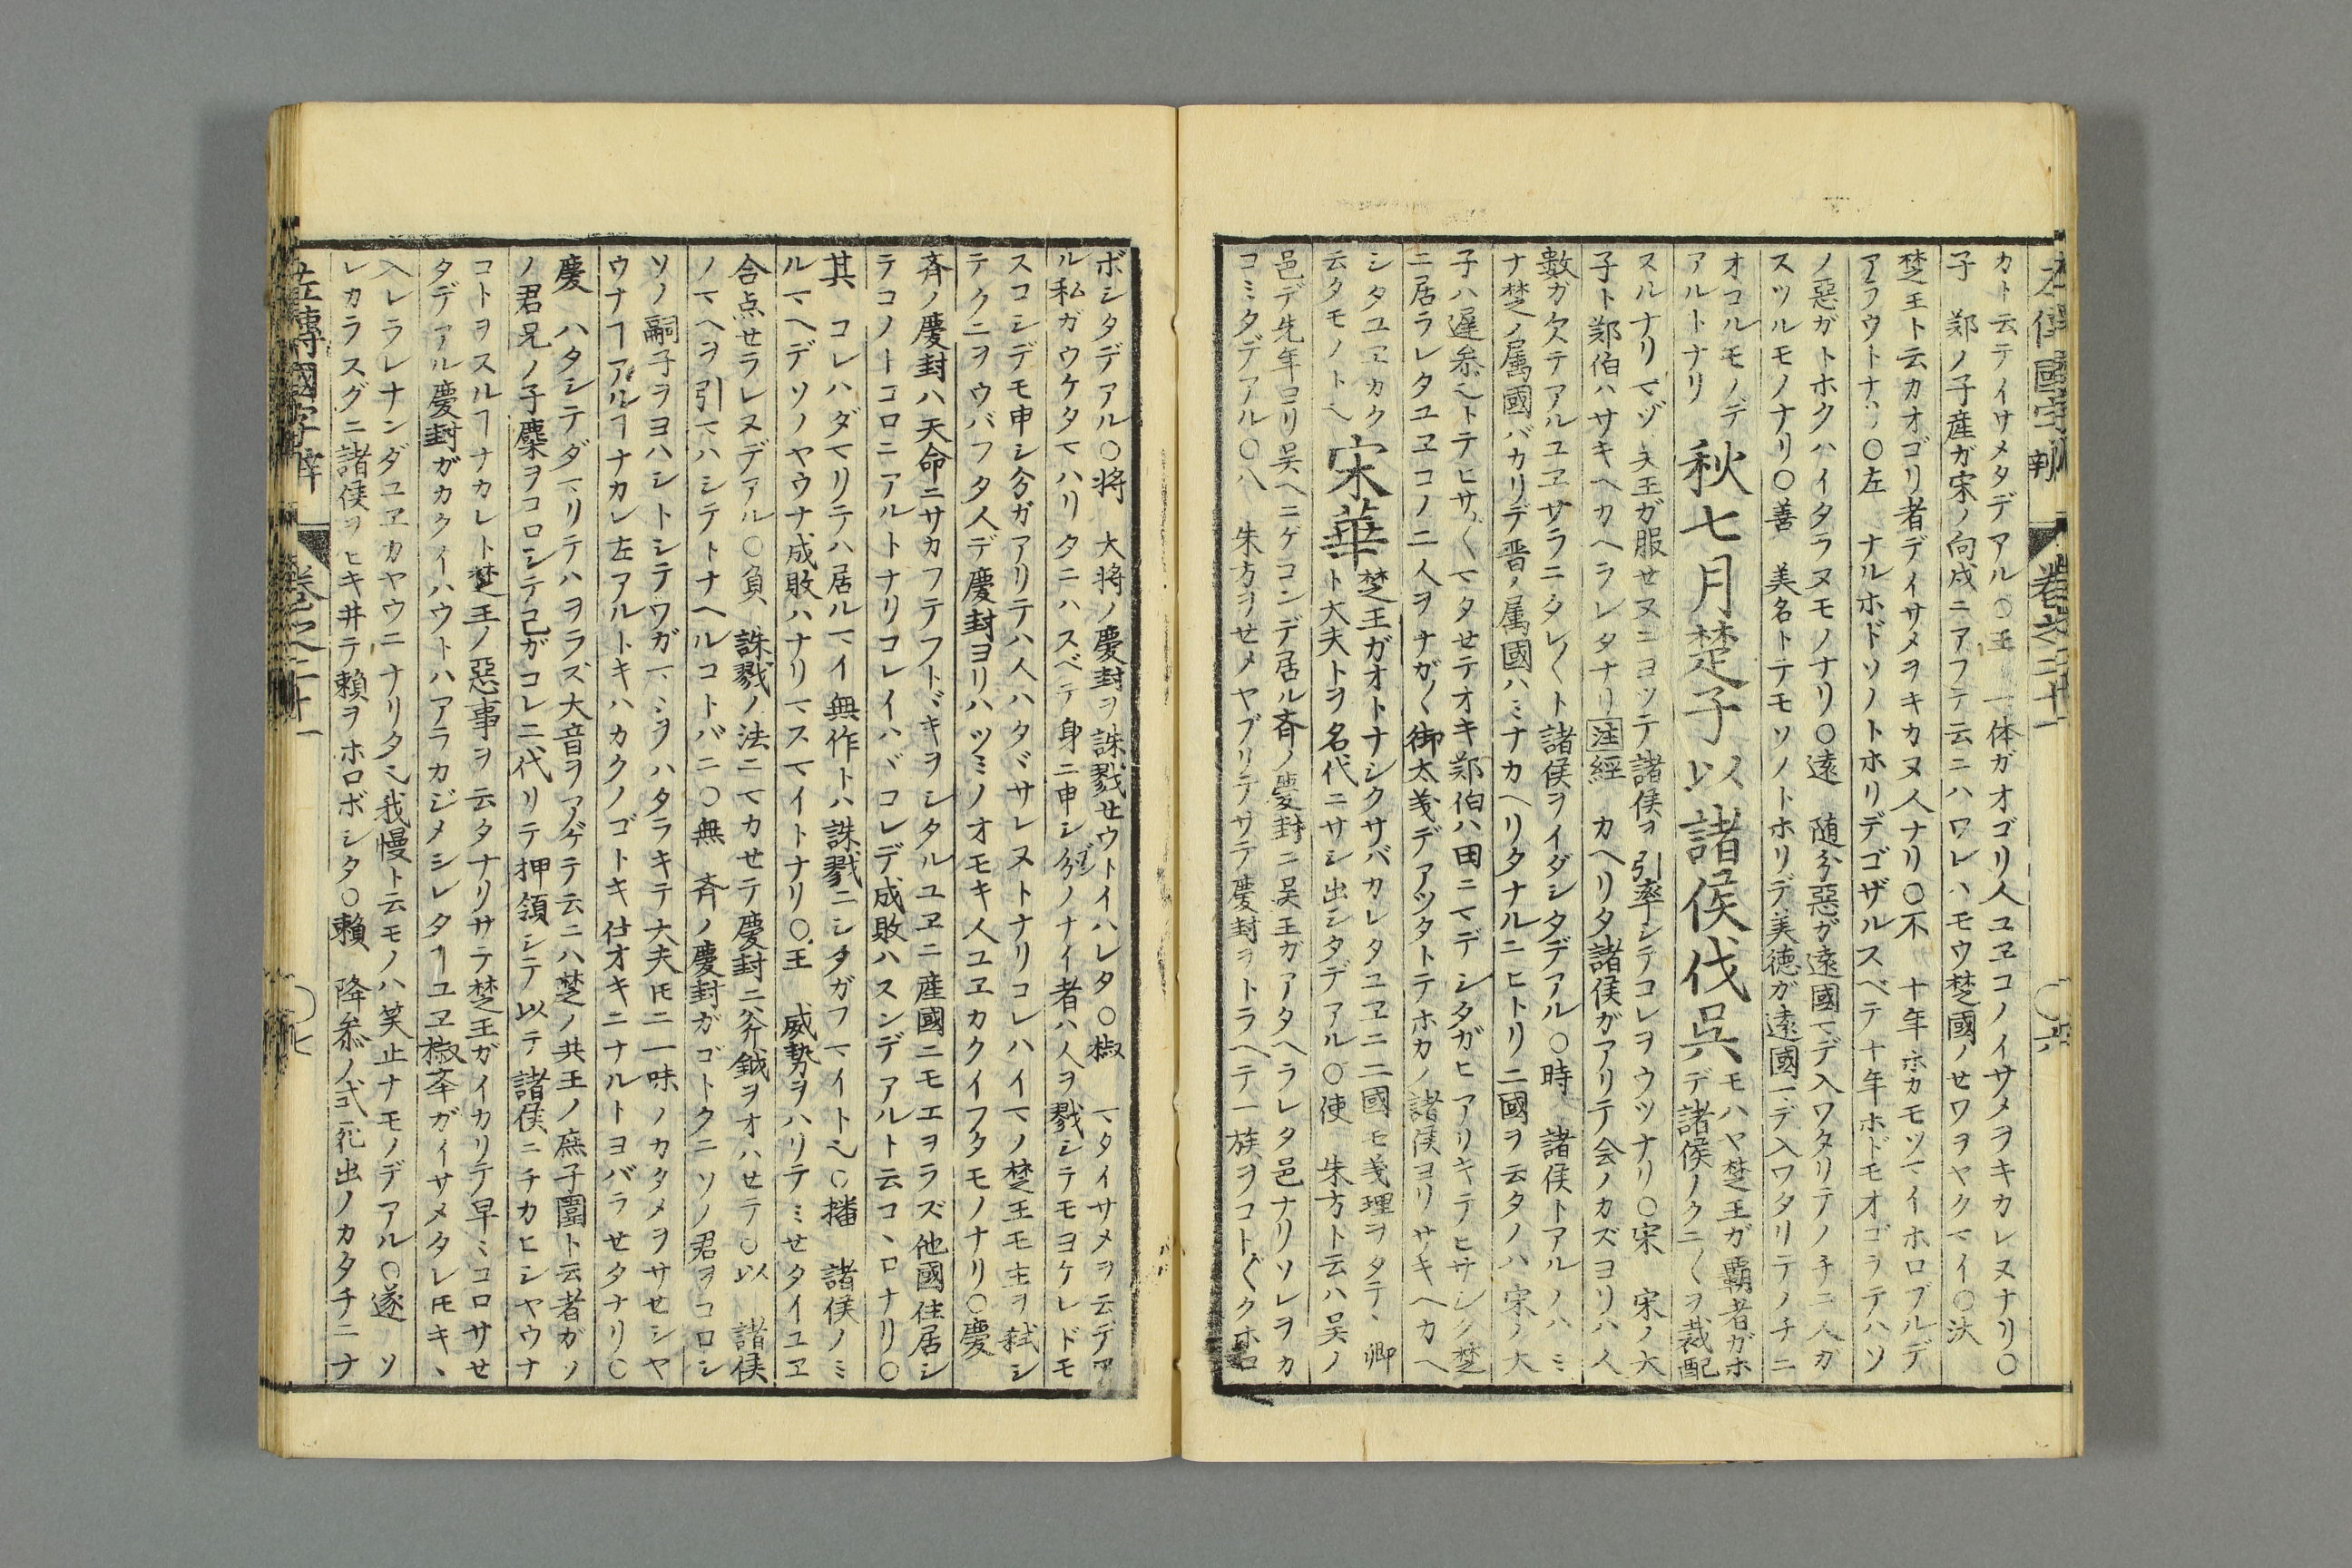 左傳國字辯 巻之二十一 〇六
カト云テイサメタデアル〇王 一体ガオゴリ人ユヱコノイサメヲキカレヌナリ〇
子 鄭ノ子産ガ宋ノ向戌ニアフテ云ニハワレハモウ楚國ノせワヲヤクマイ〇汏
楚王ト云カオゴリ者デイサメヲキカヌ人ナリ〇不 十年ホカモソマイホロブルデ
アラウトナリ〇左 ナルホドソノトホリデゴザルスベテ十年ホドモオゴラテハソ
ノ惡ガトホクハイタラヌモノナリ〇遠 随分惡ガ遠國マデ入ワタリテノチニ人ガ
スツルモノナリ〇善 美名トテモソノトホリデ美徳ガ遠國マデ入ワタリテノチニ
オコルモノデ
アルトナリ 秋七月楚子以諸侯伐呉 モハヤ楚王ガ覇者ガホ
デ諸侯ノクニ〱ヲ裁配
スルナリマヅ呉王ガ服せヌニヨツテ諸侯ヲ引率シテコレヲウツナリ〇宋 宋ノ大
子ト鄭伯ハサキヘカヘラレタナリ 注經 カヘリタ諸侯ガアリテ会ノカズヨリハ人
數ガ欠テアルユヱサラニタレ〱ト諸侯ヲイダシタデアル〇時 諸侯トアルノハミ
ナ楚ノ属國バカリデ晋ノ属國ハミナカヘリタナルニヒトリ二國ヲ云タノハ宋ノ大
子ハ遲参乄トテヒサ〱マタせテオキ鄭伯ハ田ニマデシタガヒアリキテヒサシク楚
ニ居ラレタユヱコノ二人ヲナガ〱御太義デアツタトテホカノ諸侯ヨリサキヘカヘ
シタユヱカク
云タモノト乄 宋華 楚王ガオトナシクサバカレタユヱニ二國モ義理ヲタテヽ卿
ト大夫トヲ名代ニサシ出シタデアル〇使 朱方ト云ハ呉ノ
邑デ先年ヨリ呉ヘニゲコンデ居ル斉ノ慶封ニ呉王ガアタヘラレタ邑ナリソレヲカ
コミタデアル〇八 朱方ヲせメヤブリテサテ慶封ヲトラヘテ一族ヲコト〲クホロ
ボシタデアル〇将 大将ノ慶封ヲ誅戮せウトイハレタ〇椒 マタイサメヲ云デア
ル私ガウケタマハリタニハスベテ身ニ申シ分ノナイ者ハ人ヲ戮シテモヨケレドモ
スコシデモ申シ分ガアリテハ人ハタヾサレヌトナリコレハイマノ楚王モ主ヲ弑シ
テクニヲウバフタ人デ慶封ヨリハツミノオモキ人ユヱカクイフタモノナリ〇慶
斉ノ慶封ハ天命ニサカフテフトヾキヲシタルユヱニ産國ニモエヲラズ他國住居シ
テコノトコロニアルトナリコレイハヾコレデ成敗ハスンデアルト云コヽロナリ〇
其 コレハダマリテハ居ルマイ無作トハ誅戮ニシタガフマイト乄〇播 諸侯ノミ
ルマヘデソノヤウナ成敗ハナリマスマイトナリ〇王 威勢ヲハリテミせタイユヱ
合点せラレヌデアル〇負 誅戮ノ法ニマカせテ慶封ニ斧鉞ヲオハせテ〇以 諸侯
ノマヘヲ引マハシテトナヘルコトバニ〇無 斉ノ慶封ガゴトクニソノ君ヲコロシ
ソノ嗣子ヲヨハシトシテワガマヽヲハタラキテ大夫𪜈ニ一味ノカタメヲサせシヤ
ウナヿアルヿナカレ左アルトキハカクノゴトキ仕オキニナルトヨバラせタナリ〇
慶 ハタシテダマリテハヲラズ大音ヲアゲテ云ニハ楚ノ共王ノ庶子圍ト云者ガソ
ノ君兄ノ子麇ヲコロシテ己ガコレニ代リテ押領シテ以テ諸侯ニチカヒシヤウナ
コトヲスルヿナカレト楚王ノ惡事ヲ云タナリサテ楚王ガイカリテ早ミコロサせ
タデアル慶封ガカクイハウトハアラカジメシレタヿユヱ椒举ガイサメタレ𪜈キヽ
入レラレナンダユヱカヤウニナリタ乄我慢ト云モノハ笑止ナモノデアル〇遂 ソ
レカラスグニ諸侯ヲヒキ井テ頼ヲホロボシタ〇頼 降参ノ式死出ノカタチニナ
左傳國字辯 巻之二十一 〇七